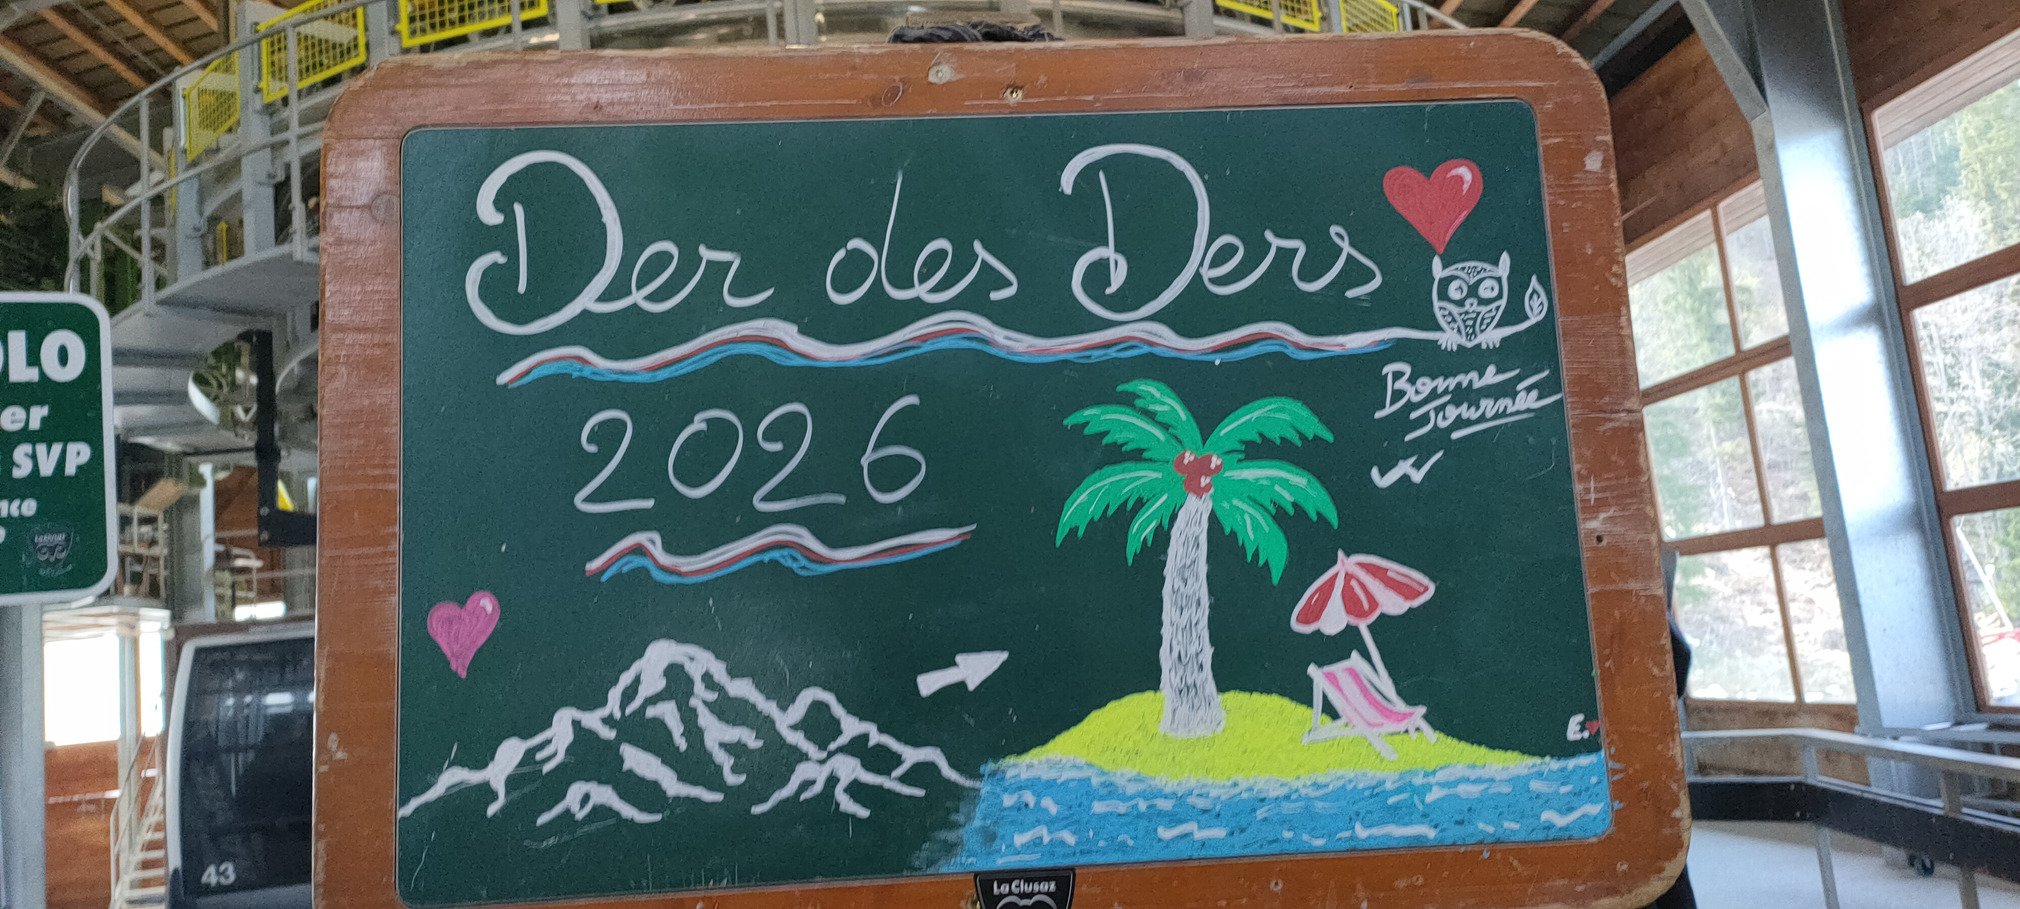 Der des Ders
2026
Bonne
Journée
E.
OLO
er
SVP
nce
43
La Clusaz